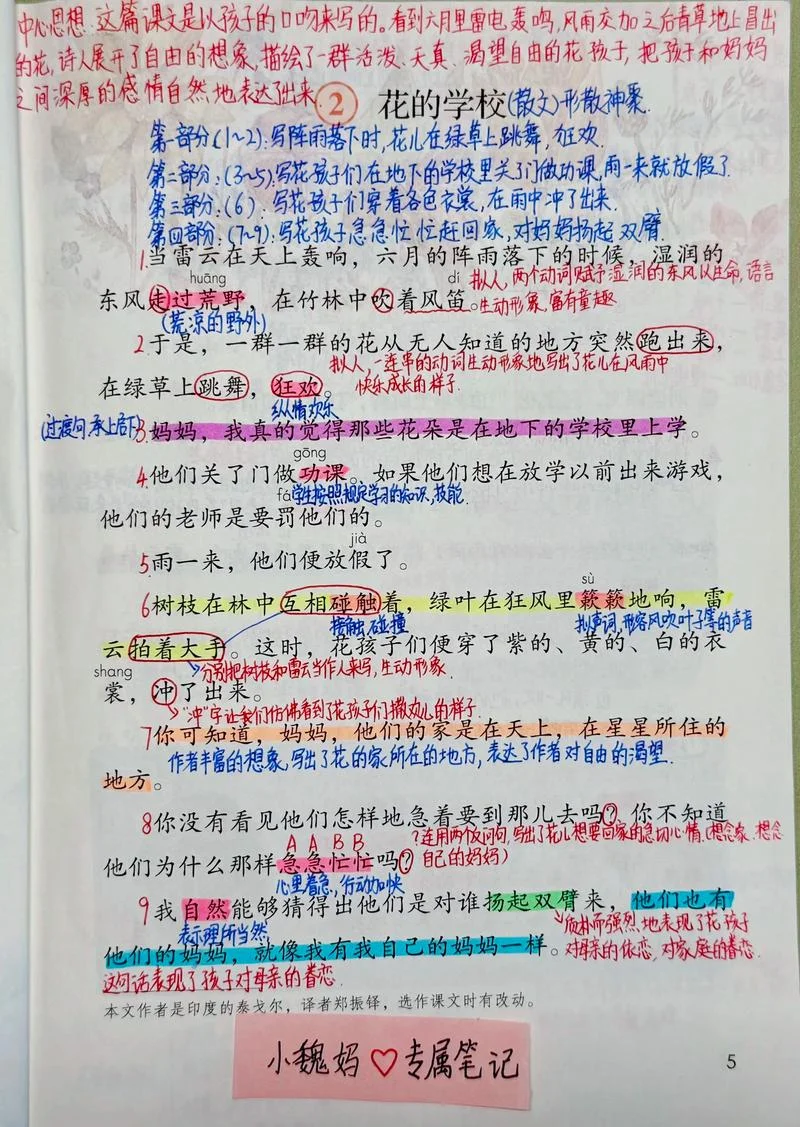 中心思想:这篇课文是以孩子的口吻来写的。看到六月里雷电轰鸣,风雨交加之后青草地上冒出
的花,诗人展开了自由的想象,描绘了一群活泼、天真、渴望自由的花孩子,把孩子和妈妈
之间深厚的感情自然地表达了出来.
② 花的学校(散文)形散神聚.
第一部分(1~2):写阵雨落下时,花儿在绿草上跳舞,狂欢.
第二部分:(3~5):写花孩子们在地下的学校里关了门做功课,雨一来就放假了.
第三部分:(6):写花孩子们穿着各色衣裳,在雨中冲了出来.
第四部分:(7~9):写花孩子急急忙忙赶回家,对妈妈扬起双臂.
1当雷云在天上轰响,六月的阵雨落下的时候,湿润的
huāng
dí
拟人,两个动词赋予湿润的东风以生命,语言
东风走过荒野,在竹林中吹着风笛。
生动形象,富有童趣
(荒凉的野外)
2于是,一群一群的花从无人知道的地方突然跑出来,
拟人,一连串的动词生动形象地写出了花儿在风雨中
在绿草上跳舞,狂欢。
快乐成长的样子.
纵情欢乐
(过渡句:承上启下)
3.妈妈,我真的觉得那些花朵是在地下的学校里上学。
gōng
4他们关了门做功课。如果他们想在放学以前出来游戏,
fá
学生按照规定学习的知识,技能.
他们的老师是要罚他们的。
jià
5雨一来,他们便放假了。
sù
6树枝在林中互相碰触着,绿叶在狂风里簌簌地响,雷
接触,碰撞
拟声词,形容风吹叶子等的声音
云拍着大手。这时,花孩子们便穿了紫的、黄的、白的衣
shang
分别把树枝和雷云当作人来写,生动形象.
裳,冲了出来。
"冲"字让我们仿佛看到了花孩子们撒欢儿的样子.
7你可知道,妈妈,他们的家是在天上,在星星所住的
作者丰富的想象,写出了花的家所在的地方,表达了作者对自由的渴望.
地方。
8你没有看见他们怎样地急着要到那儿去吗?你不知道
?连用两个反问句,写出了花儿想要回家的急切心情.(想念家,想念
A A B B
他们为什么那样急急忙忙吗?
自己的妈妈)
心里着急,行动加快
9我自然能够猜得出他们是对谁扬起双臂来,他们也有
表示理所当然
质朴而强烈地表现了花孩子
他们的妈妈,就像我有我自己的妈妈一样。
对母亲的依恋,对家庭的眷恋.
这句话表现了孩子对母亲的眷恋.
本文作者是印度的泰戈尔,译者郑振铎,选作课文时有改动。
小魏妈♡专属笔记
5